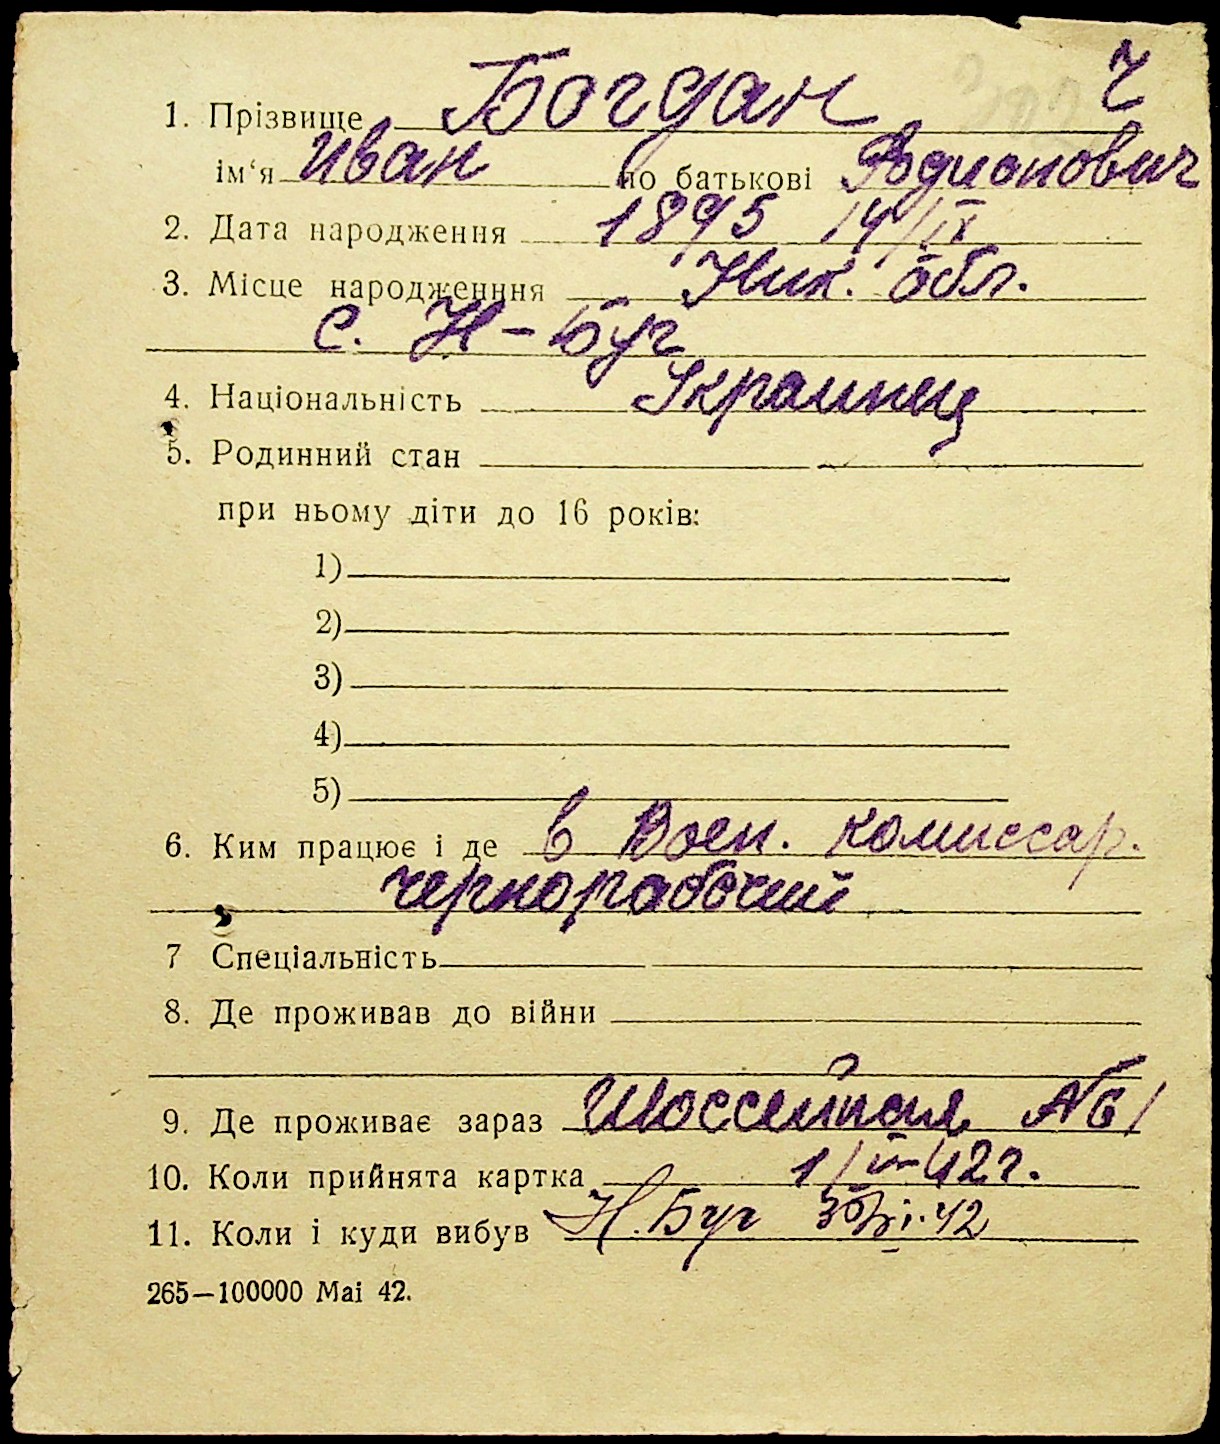 Ч
1. Прізвище Богдан
ім‘я Иван по батькові Родионович
2. Дата народження 1895 14/IX
3. Місце народженння Ник. обл.
с. Н-Буг
4. Національність Украинец
5. Родинний стан
при ньому діти до 16 років:
1)
2)
3)
4)
5)
6. Ким працює і де в Воен. комиссар.
чернорабочий
7 Спеціальність
8. Де проживав до війни
9. Де проживає зараз Шоссейная №61
10. Коли прийнята картка 42г.
11. Коли і куди вибув Н. Буг
265—100000 Маі 42.